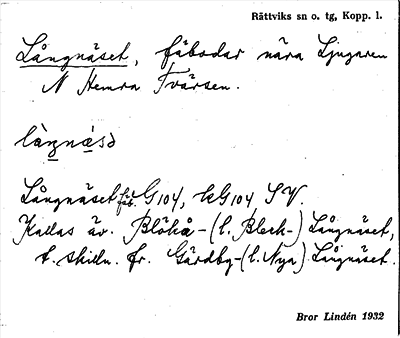 Rättviks sn o. tg, Kopp. l.
Långnäset, fäbodar nära Ljugaren
N Hemra Tvärsen.
làŋnǻsə
Långnäset fäb. G104, kG104 SV.
Kallas äv. Blökå- (l. Bleck-) Långnäset,
t. skilln. fr. Gärdby- (l. Nya) Långnäset.
Bror Lindén 1932